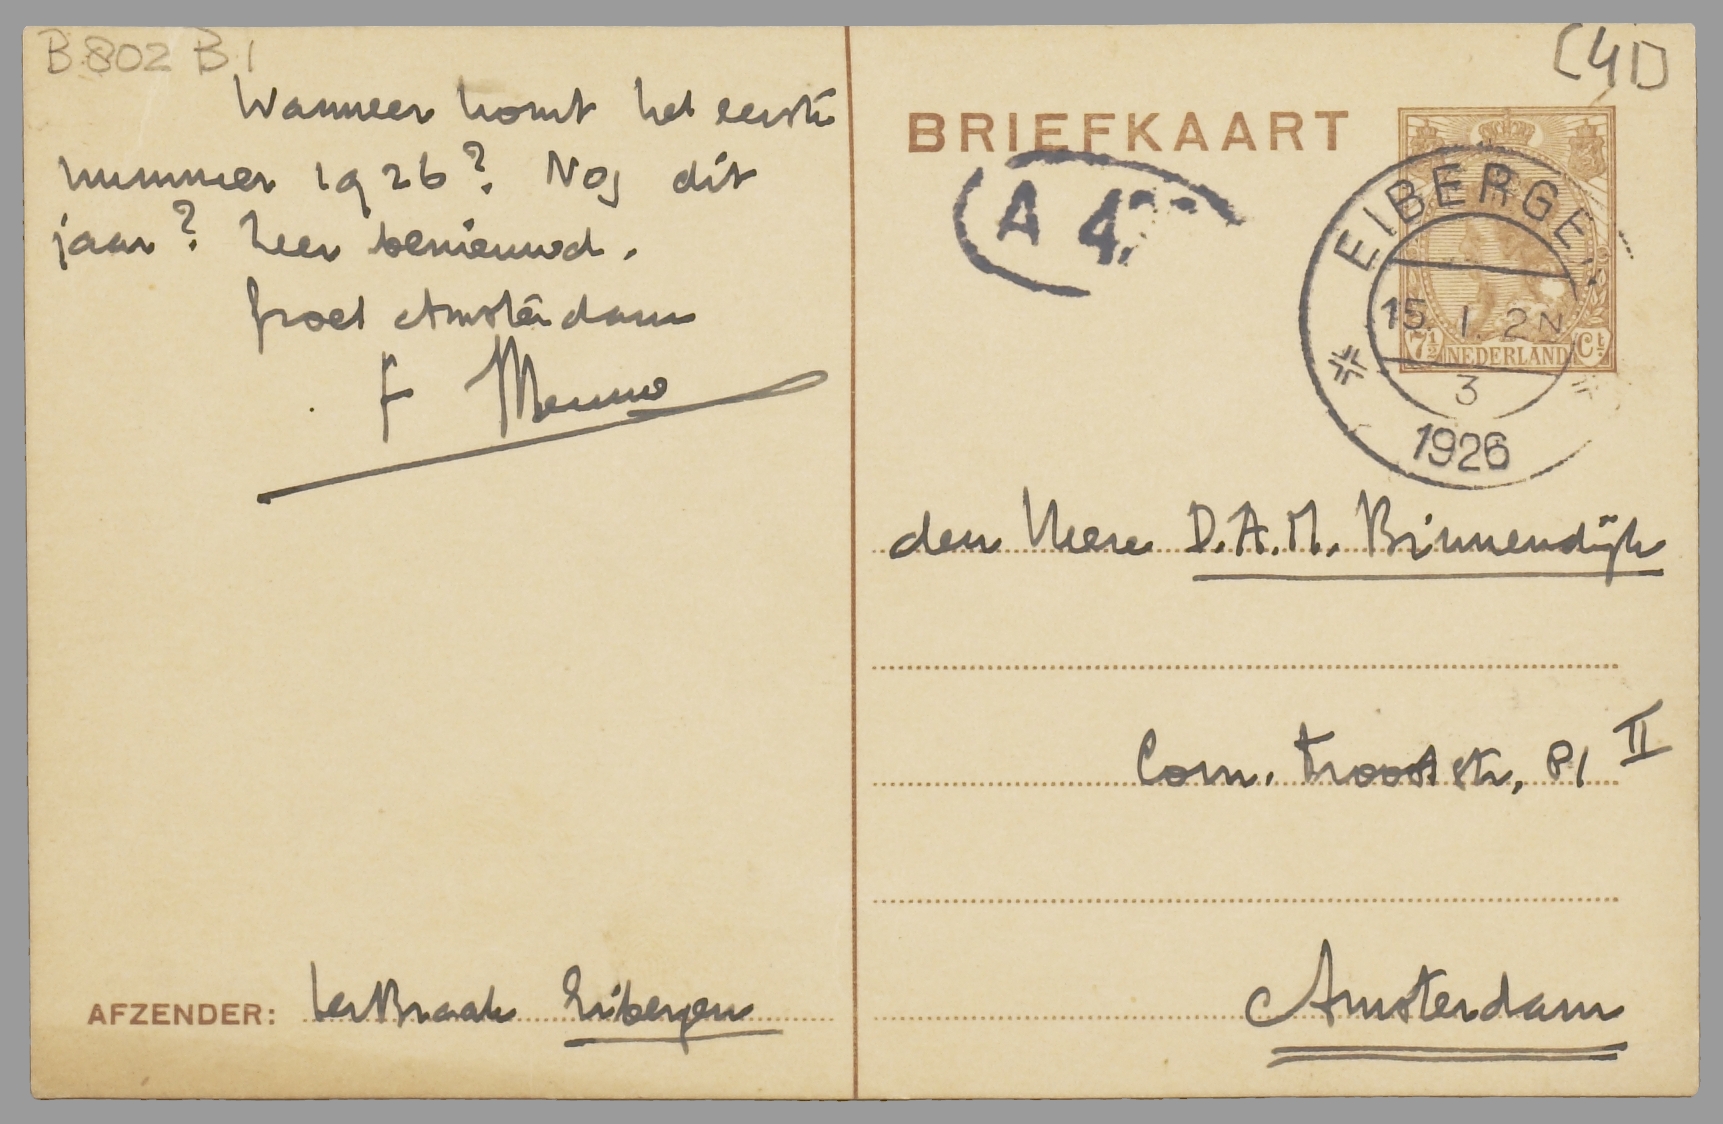 B 802 B 1
Wanneer komt het eerste
nummer 1926? Nog dit
jaar? Zeer benieuwd.
groet Amsterdam
t. Menno
AFZENDER: ter Braak Eibergen
[41]
BRIEFKAART
A 4
EIBERGEN
15 1 2N
3
1926
7½ NEDERLAND Ct
den Heere D.A.M. Binnendijk
Corn. Trooststr, 81 II
Amsterdam